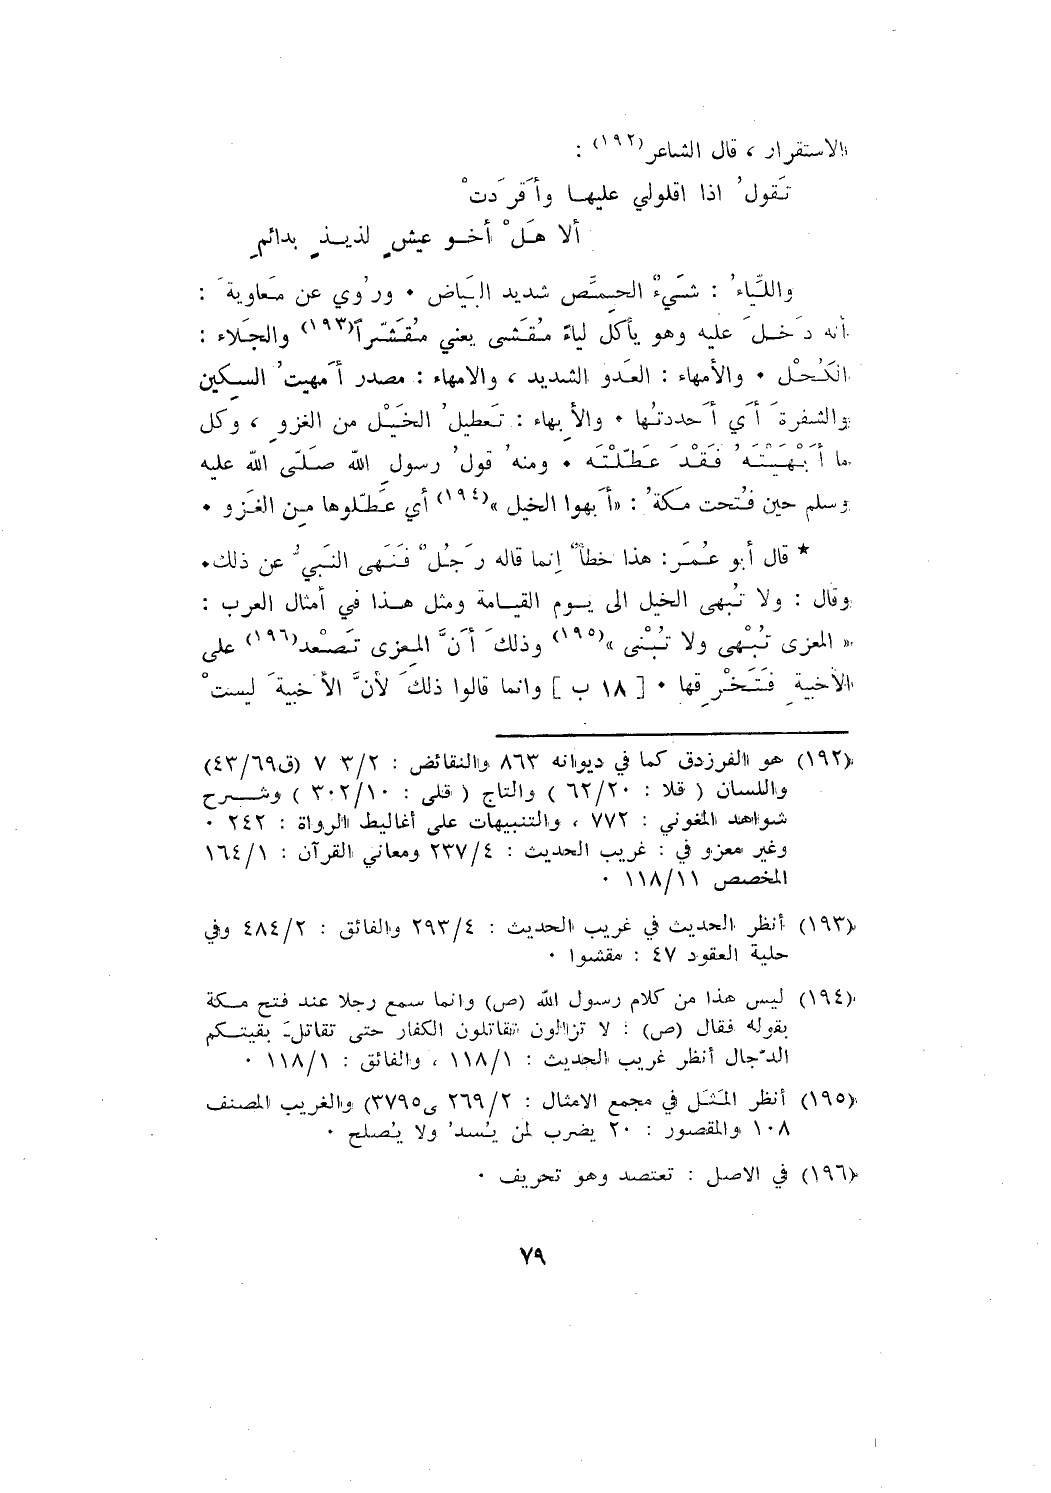 الاستقرار ، قال الشاعر(١٩٢) :
تَقولُ اذا اقلولي عليها وأَقرَدتْ
ألا هَلْ أخو عيشٍ لذيذٍ بدائمِ
واللّياءُ : شَيءٌ الحِمَّص شديد البَياض ٠ ورُوي عن مَعاوية َ :
أنه دَخلَ عليه وهو يأكل لياءً مُقَشى يعني مُقَشّراً(١٩٣) والجَلاء :
الكُحْل ٠ والأمهاء : العَدو الشديد ، والامهاء : مصدر أَمهيتُ السِكين
والشفرةَ أَي أَحددتُها ٠ والأِبهاء : تَعطيلُ الخَيْل من الغزوِ ، وكل
ما أَبْهَيْتَه ُ فَقَدْ عَطّلْتَه ٠ ومنه ُ قولُ رسولِ الله صَلّى الله عليه
وسلم حين فُتحت مَكة ُ : «أَبهوا الخيل »(١٩٤) أي عَطّلوها مِن الغَزو ٠
* قال أبو عُمَر : هذا خطأٌ إنما قاله رَجُلٌ فَنَهى النَبيُّ عن ذلك ٠
وقال : ولا تُبهى الخيل الى يوم القيامة ومثل هذا في أمثال العرب :
« المعزى تُبْهى ولا تُبْنى »(١٩٥) وذلكَ أَنَّ المِعزى تَصْعد(١٩٦) على
الأخبيةِ فَتَخْرِقها ٠ [ ١٨ ب ] وانما قالوا ذلكَ لأنَّ الأخبيةَ ليستْ
(١٩٢) هو الفرزدق كما في ديوانه ٨٦٣ والنقائض : ٢/٣ ٧ (ق٤٣/٦٩)
واللسان ( قلا : ٦٢/٢٠ ) والتاج ( قلى : ٣٠٢/١٠ ) وشرح
شواهد المغوني : ٧٧٢ ، والتنبيهات على أغاليط الرواة : ٢٤٢ ٠
وغير معزو في : غريب الحديث : ٢٣٧/٤ ومعاني القرآن : ١٦٤/١
المخصص ١١٨/١١ ٠
(١٩٣) أنظر الحديث في غريب الحديث : ٢٩٣/٤ والفائق : ٤٨٤/٢ وفي
حلية العقود ٤٧ : مقشوا ٠
(١٩٤) ليس هذا من كلام رسول الله (ص) وانما سمع رجلا عند فتح مكة
يقوله فقال (ص) : لا تزالون تقاتلون الكفار حتى تقاتلَ بقيتكم
الدّجال أنظر غريب الحديث : ١١٨/١ ، والفائق : ١١٨/١ ٠
(١٩٥) أنظر المَثَل في مجمع الامثال : ٢٦٩/٢ ى٣٧٩٥) والغريب المصنف
١٠٨ والمقصور : ٢٠ يضرب لمن يُسدُ ولا يُصلح ٠
(١٩٦) في الاصل : تعتصد وهو تحريف ٠
٧٩